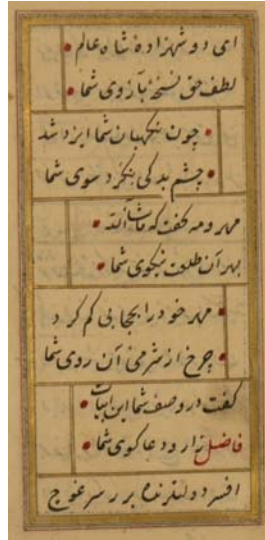 ای دو شهزادهٔ شاه عالم
لطف حق نسخهٔ بازوی شما
چون نگهبان شما ایزد شد
چشم بد کی نگرد سوی شما
مهر و مه گفت که
بهر آن طلعت نیکوی شما
مهر خود را بحجابی کم کرد
چرخ از شرم آن روی شما
گفت در وصف شما این ابیات
فاضل زار و دعاکوی شما
افسر دولت بر سر